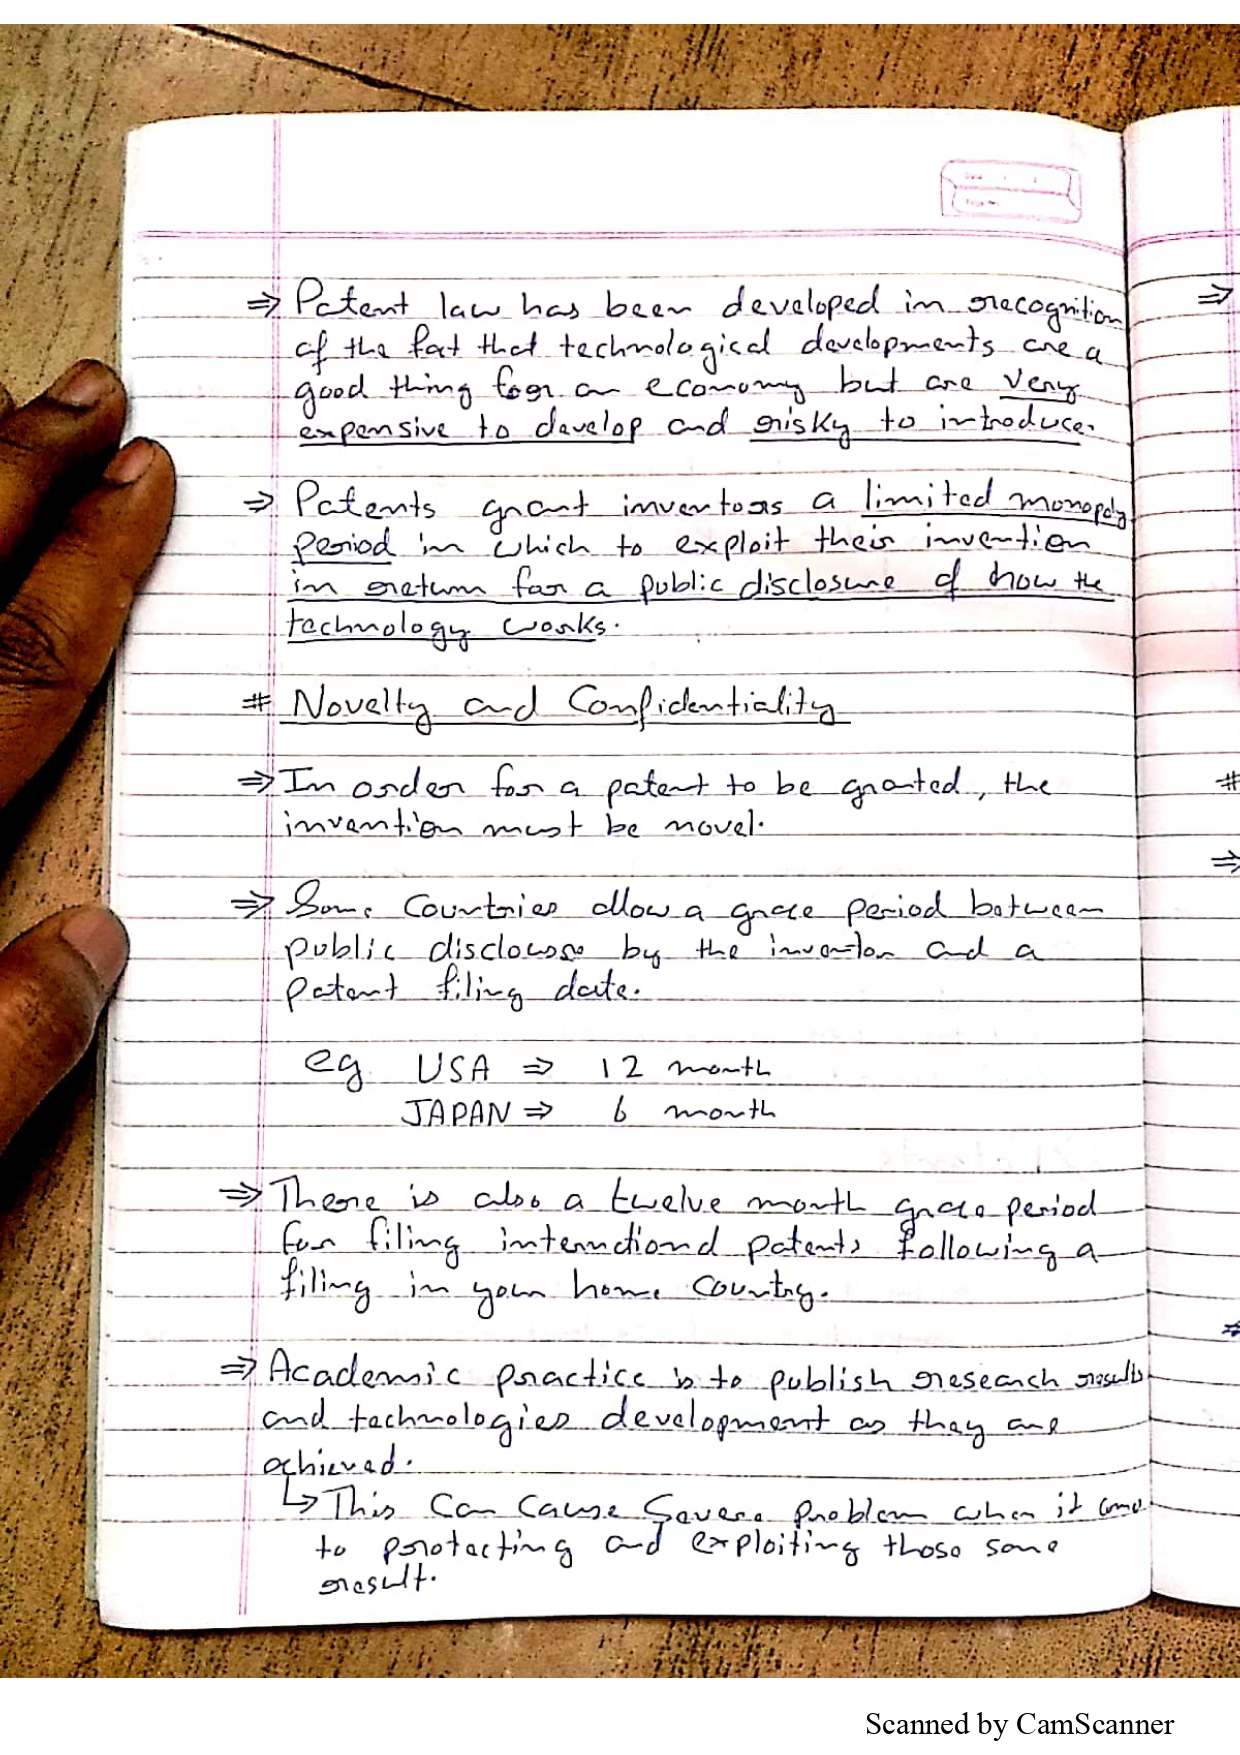 ⇒ Patent law has been developed in recognition
of the fact that technological developments are a
good thing for an economy but are very
expensive to develop and risky to introduce.
⇒ Patents grant inventors a limited monopoly
period in which to exploit their invention
in return for a public disclosure of how the
technology works.
# Novelty and Confidentiality
⇒ In order for a patent to be granted, the
invention must be novel.
⇒ Some Countries allow a grace period between
public disclosure by the inventor and a
patent filing date.
eg USA ⇒ 12 month
JAPAN ⇒ 6 month
⇒ There is also a twelve month grace period
for filing international patents following a
filing in your home Country.
⇒ Academic practice is to publish research results
and technologies development as they are
achieved.
↳ This Can Cause Severe problem when it come
to protecting and exploiting those same
result.
⇒
#
⇒
#
Scanned by CamScanner